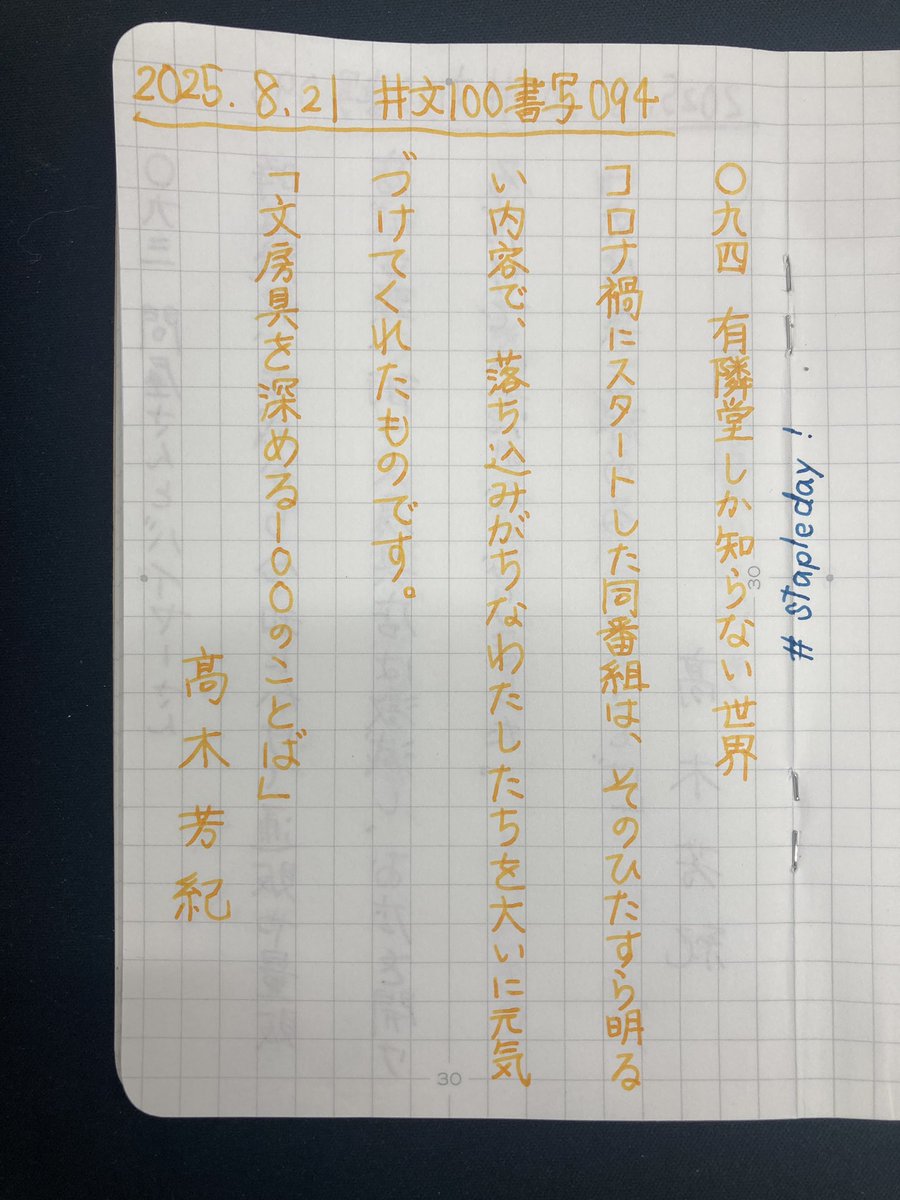 2025.8.21 #文100書写094
〇九四 有隣堂しか知らない世界
コロナ禍にスタートした同番組は、そのひたすら明る
い内容で、落ち込みがちなわたしたちを大いに元気
づけてくれたものです。
「文房具を深める一〇〇のことば」
髙木芳紀
#stapleday!
30
30